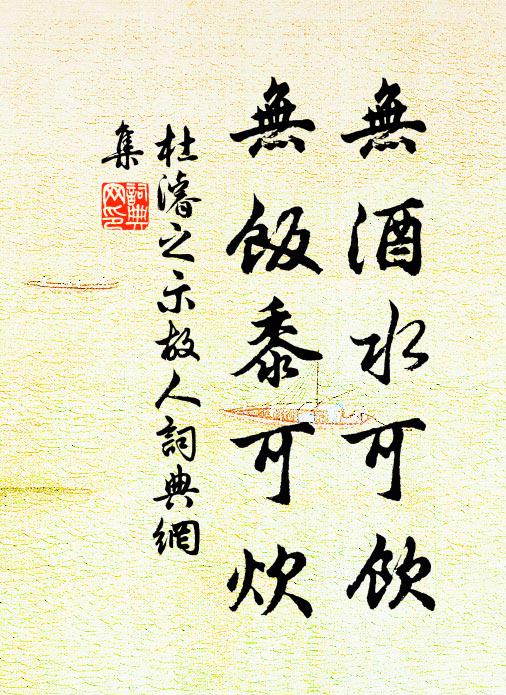 無酒水可飲
無飯黍可炊
杜濬之示故人詞典網
集
詞典
网印